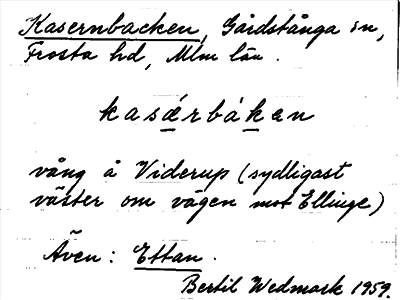 Kasernbacken, Gårdstånga sn,
Frosta hd, Mlm län.
kasǽrbákæn
vång å Viderup (sydligast
väster om vägen mot Ellinge)
Även: Ettan.
Bertil Wedmark 1959.